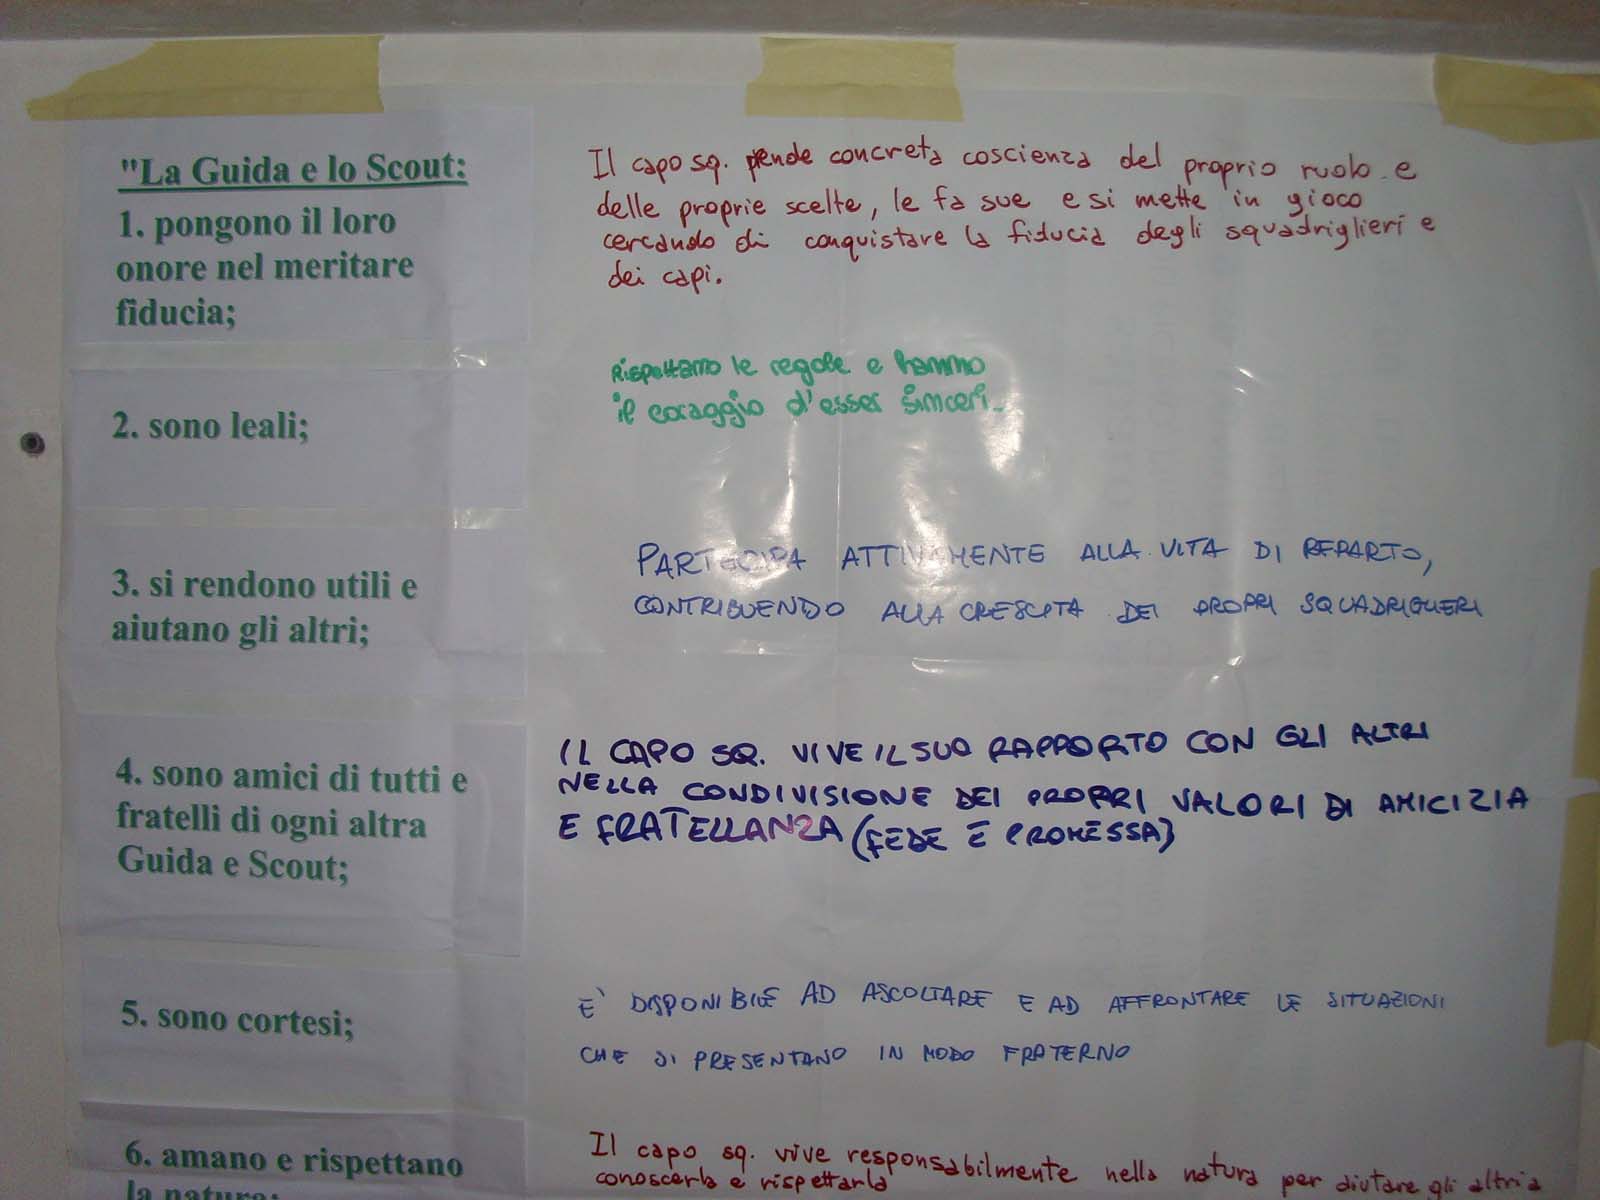 "La Guida e lo Scout:
1. pongono il loro
onore nel meritare
fiducia;
Il capo sq. prende concreta coscienza del proprio ruolo e
delle proprie scelte, le fa sue e si mette in gioco
cercando di conquistare la fiducia degli squadriglieri e
dei capi.
2. sono leali;
rispettano le regole e hanno
il coraggio d'esser sinceri.
3. si rendono utili e
aiutano gli altri;
PARTECIPA ATTIVAMENTE ALLA VITA DI REPARTO,
CONTRIBUENDO ALLA CRESCITA DEI PROPRI SQUADRIGLIERI
4. sono amici di tutti e
fratelli di ogni altra
Guida e Scout;
IL CAPO SQ. VIVE IL SUO RAPPORTO CON GLI ALTRI
NELLA CONDIVISIONE DEI PROPRI VALORI DI AMICIZIA
E FRATELLANZA (FEDE E PROMESSA)
5. sono cortesi;
E' DISPONIBILE AD ASCOLTARE E AD AFFRONTARE LE SITUAZIONI
CHE SI PRESENTANO IN MODO FRATERNO
6. amano e rispettano
la natura;
Il capo sq. vive responsabilmente nella natura per aiutare gli altri a
conoscerla e rispettarla